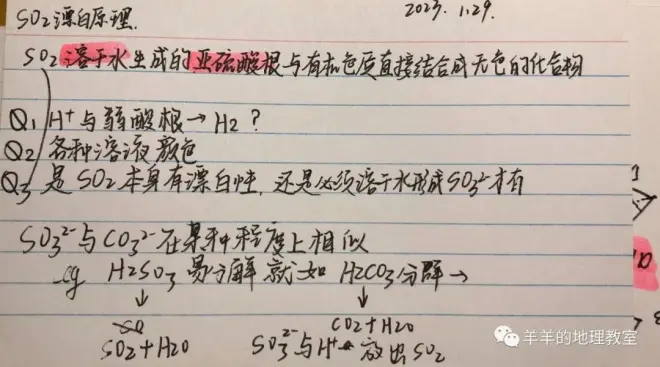 SO2漂白原理.
2023. 1.29.
SO2溶于水生成的亚硫酸根与有机色质直接结合成无色的化合物
Q1 H⁺与弱酸根→H2？
Q2 各种溶液颜色
Q3 是SO2本身有漂白性,还是必须溶于水形成SO3²⁻才有
SO3²⁻与CO3²⁻在某种程度上相似
eg H2SO3易分解就如H2CO3分解→
↓ ↓
SO2+H2O CO2+H2O
SO3²⁻与H⁺ 放出SO2
羊羊的地理教室